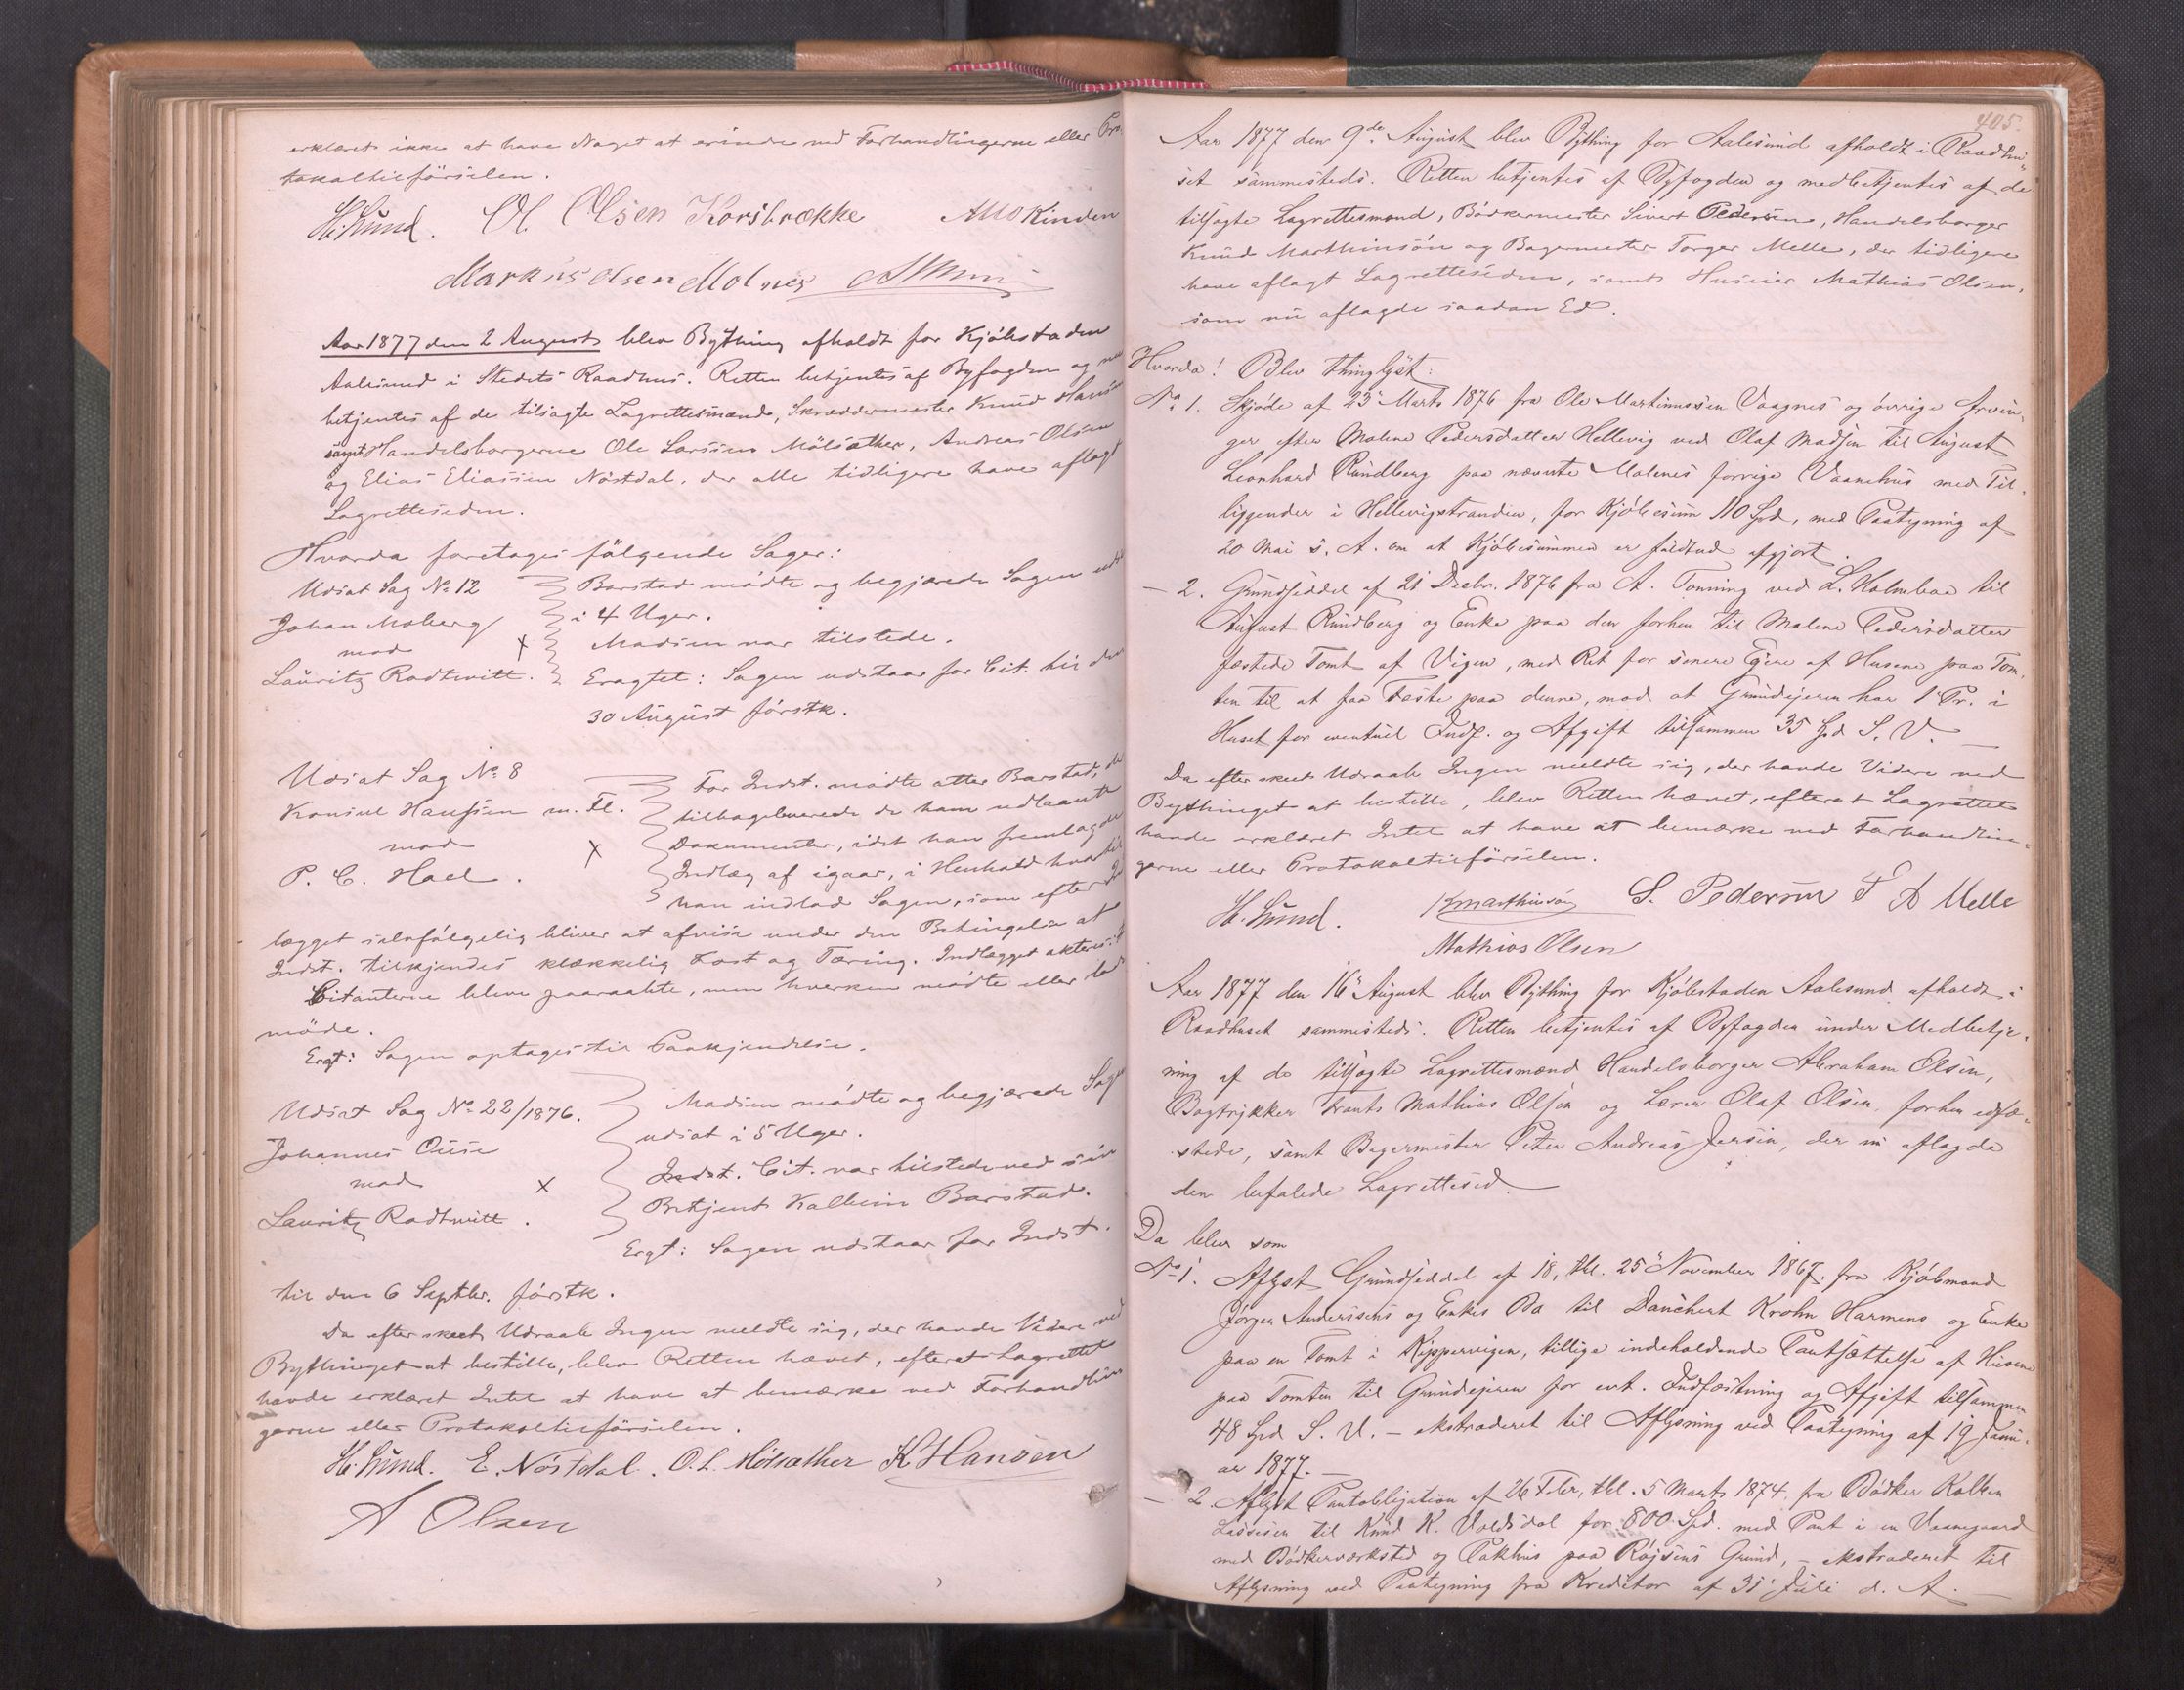 erklæret ikke at have Noget at erindre ved Forhandlingerne eller Pro-
tokoltilførselen.
H. Lund. Ol. Olsen Korsbrække AMOKinden
Markus Olsen Molnes
Aar 1877 den 2 August blev Bything afholdt for Kjøbstaden
Aalesund i Stedets Raadhus. Retten betjentes af Byfogden og med
betjentes af de tilsagte Lagrettesmænd, Skræddermester Knud Hansen
samt Handelsborgerne Ole Larssen Mölsæther, Andreas Olsen
og Elias Eliassen Nöstdal, der alle tidligere have aflagt
Lagretteseden.
Hvorda foretages fölgende Sager:
Udsat Sag No 12
Johan Moberg
mod
Lauritz Rodtwitt.
Barstad mödte og begjærede Sagen uds
i 4 Uger.
Madsen var tilstede.
Eragtet: Sagen udstaar for Cit. til den
30 August förstk.
Udsat Sag No 8
Konsul Hanssen m. Fl.
mod
P. C. Hoel.
For Indst. mödte atter Barstad, der
tilbageleverede de ham udlaante
Dokumenter, idet han fremlagde
Indlæg af igaar, i Henhold hvortil
han indlod Sagen, som efter Ind
lægget selvfølgelig bliver at afvise under den Betingelse at
Indst. tilkjendes klækkelig Kost og Tæring. Indlægget akteres:
Citanterne bleve paaraabte, men hverken mödte eller lod
möde.
Eragt: Sagen optages til Paakjendelse.
Udsat Sag No 22/1876.
Johannes Ouse
mod
Lauritz Rodtwitt.
Madsen mödte og begjærede Sagen
udsat i 5 Uger.
Indst. Cit. var tilstede ved sin
Betjent Kolbein Barstad.
Eragt: Sagen udstaar for Indst.
til den 6 Septbr. förstk.
Da efter skeet Udraab Ingen meldte sig, der havde Videre ved
Bythinget at bestille, blev Retten hævet, efterat Lagrettet
havde erklæret Intet at have at bemærke ved Forhandlin
gerne eller Protokoltilförselen.
H. Lund. E. Nöstdal. O. L. Mölsæther K Hansen
A Olsen
405.
Aar 1877 den 9de August blev Bything for Aalesund afholdt i Raadhu-
set sammesteds. Retten betjentes af Byfogden og medbetjentes af de
tilsagte Lagrettesmænd, Bödkermester Sivert Pedersen, Handelsborger
Knud Marthinsön og Bagermester Torger Melle, der tidligere
have aflagt Lagretteseden, samt Huseier Mathias Olsen,
som nu aflagde saadan Ed.
Hvorda! Blev thinglyst:
No 1. Skjøde af 23 Marts 1876 fra Ole Martinussen Vaagnes og övrige Arvin-
ger efter Malene Pedersdatter Hellevig ved Olaf Madsen til August
Leonhard Rundberg paa nævnte Malenes forrige Vaanehus med Til-
liggender i Hellevigstranden, for Kjöbesum 110 Spd, med Paategning af
20 Mai s. A. om at Kjöbesummen er fuldtud afgjort.
— 2. Grundseddel af 21 Decbr. 1876 fra A. Tonning ved L. Holmboe til
August Rundberg og Enke paa den forhen til Malene Pedersdatter
fæstede Tomt af Vigen, med Ret for senere Eiere af Husene paa Tom-
ten til at faa Fæste paa denne, mod at Grundejeren har 1 Pr. i
Huset for eventuel Indf. og Afgift tilsammen 35 Spd S. V. —
Da efter skeet Udraab Ingen meldte sig, der havde Videre ved
Bythinget at bestille, blev Retten hævet, efterat Lagrettet
havde erklæret Intet at have at bemærke ved Forhandlin-
gerne eller Protokoltilförselen.
H. Lund. KMarthinsön S. Pedersen T A Melle
Mathias Olsen
Aar 1877 den 16 August blev Bything for Kjöbstaden Aalesund afholdt i
Raadhuset sammesteds. Retten betjentes af Byfogden under Medbetje-
ning af de tilsagte Lagrettesmænd Handelsborger Abraham Olsen,
Bogtrykker Frants Mathias Olsen og Lærer Olaf Olsen forhen edfæ-
stede, samt Bagermester Peter Andreas Jensen, der nu aflagde
den befalede Lagretteed.
Da blev som
No 1. Aflyst Grundseddel af 18, thl. 25 November 1867 fra Kjöbmand
Jørgen Anderssens og Enkes Bo til Danchert Krohn Harmens og Enke
paa en Tomt i Kippervigen, tillige indeholdende Pantsættelse af Husene
paa Tomten til Grundejeren for evt. Indfæstning og Afgift tilsammen
48 Spd S. V. – ekstraderet til Aflysning ved Paategning af 19 Janu-
ar 1877. —
— 2. Aflyst Pantobligation af 26 Febr, thl. 5 Marts 1874 fra Bödker Kolben
Lassesen til Knud K. Voldsdal for 800 Spd. med Pant i en Vaanegaard
med Bödkerværksted og Pakhus paa Röjsens Grund, – ekstraderet til
Aflysning ved Paategning fra Kreditor af 31 Juli d. A. —